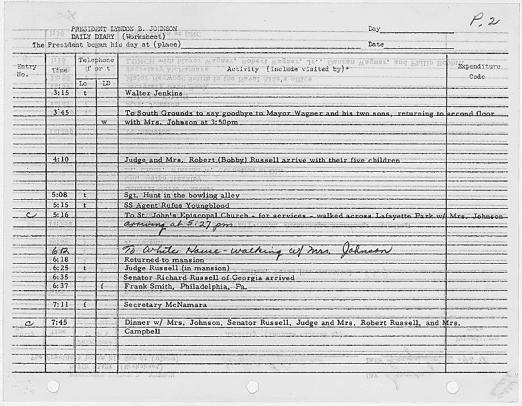 P. 2
PRESIDENT LYNDON B. JOHNSON
DAILY DIARY (Worksheet)
The President began his day at (place)
Day
Date
Entry No. Time Telephone f or t Lo LD Activity (include visited by)* Expenditure Code
3:15 t Walter Jenkins
3:45 To South Grounds to say goodbye to Mayor Wagner and his two sons, returning to second floor
w with Mrs. Johnson at 3:50pm
4:10 Judge and Mrs. Robert (Bobby) Russell arrive with their five children
5:08 t Sgt. Hunt in the bowling alley
5:15 t SS Agent Rufus Youngblood
c 5:16 To St. John's Episcopal Church - for services - walked across Lafayette Park w/ Mrs. Johnson
arriving at 5:27 pm
6:12 To White House - walking w/ Mrs. Johnson
6:18 Returned to mansion
6:25 t Judge Russell (in mansion)
6:35 Senator Richard Russell of Georgia arrived
6:37 f Frank Smith, Philadelphia, Pa.
7:11 f Secretary McNamara
c 7:45 Dinner w/ Mrs. Johnson, Senator Russell, Judge and Mrs. Robert Russell, and Mrs.
Campbell